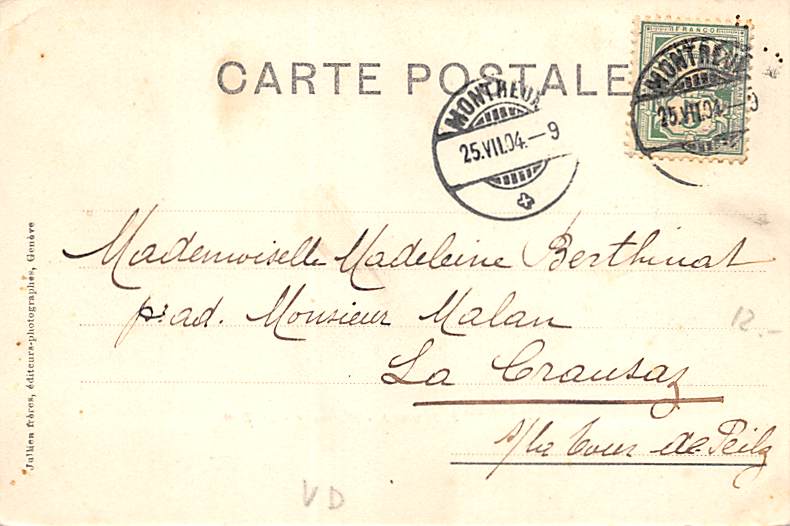 CARTE POSTALE
FRANCO
MONTREUX
25.VII.04.—9
MONTREUX
25.VII.04.—9
Mademoiselle Madeleine Berthinat
p. ad. Monsieur Malan
La Crausaz
s/ La Tour de Peilz
12.-
VD
Jullien frères, éditeurs-photographes, Genève